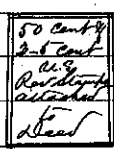 50 cent &
2-5 cent
U.S.
Rev. Stamps
attached
to
Deed